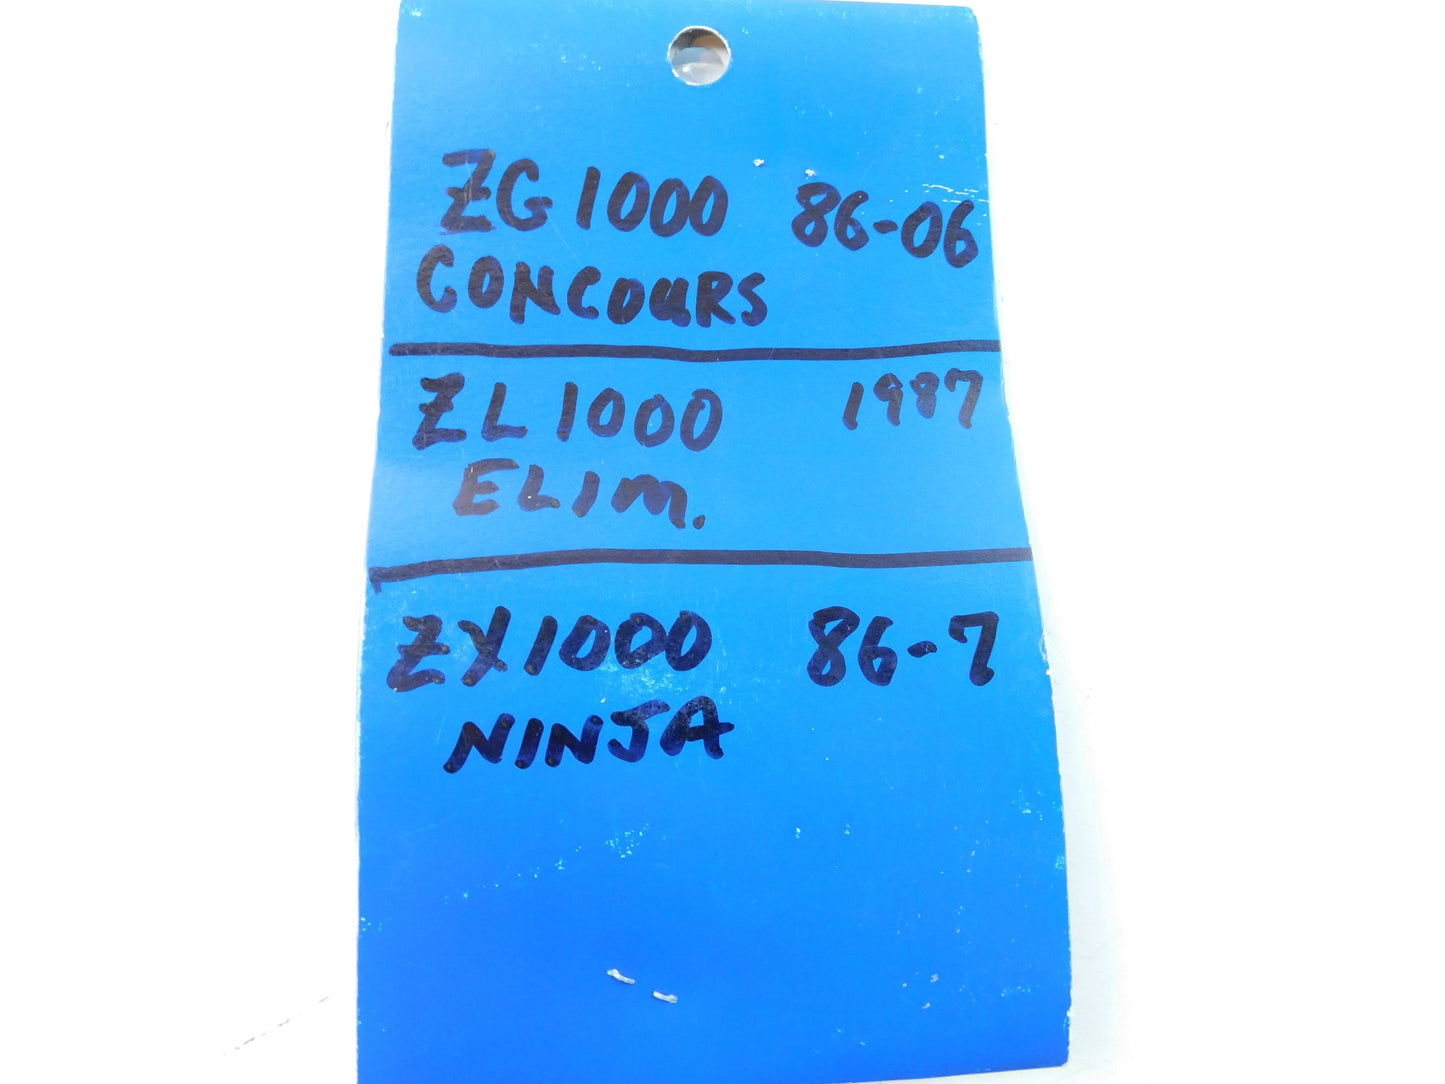 ZG1000 86-06
CONCOURS
ZL1000 1987
ELIM.
ZX1000 86-7
NINJA